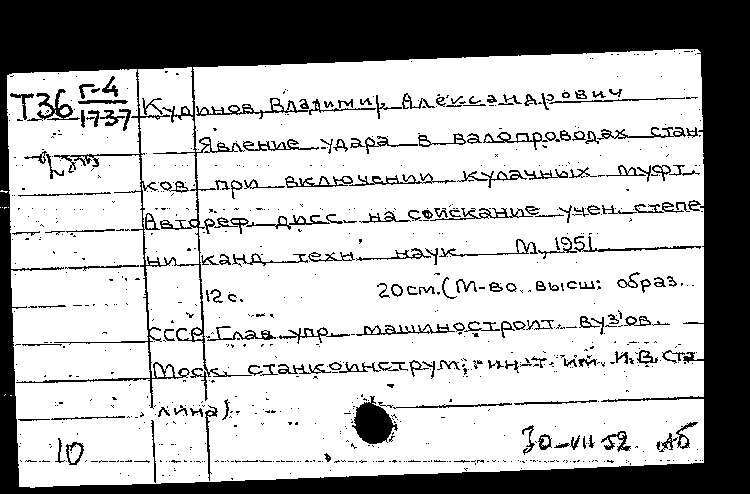 Т36 Г-4
1737
Кудинов, Владимир Александрович
Явление удара в валопроводах стан-
ков при включении кулачных муфт.
Автореф. дисс. на соискание учен. степе-
ни канд. техн. наук. М., 1951.
12 с. 20 см. (М-во высш. образ.
СССР. Глав. упр. машиностроит. вузов.
Моск. станкоинструм. ин-т им. И.В. Ста-
лина)
10 30-VII 52 АБ